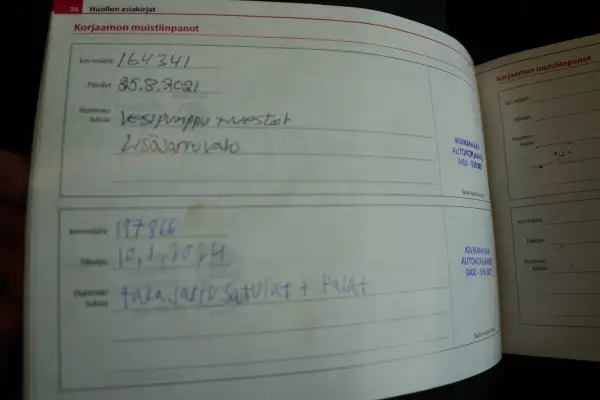 76 Huollon asiakirjat
Korjaamon muistiinpanot
km-määrä: 164341
Päiväys: 25.8.2021
Huomau-
tuksia: Vesipumppu + nestet
Lisäjarruvalo
KIVIKANKAAN
AUTOKORJAAMO
0400 -
km-määrä: 197866
Päiväys: 10.1.2024
Huomau-
tuksia: takajarru satulat + Palat
KIVIKANKAAN
AUTOKORJAAMO
0400 -
Korjaamon muistiinpanot
km-määrä:
Päiväys:
Huomau-
tuksia:
km-määrä:
Päiväys:
Huomau-
tuksia: